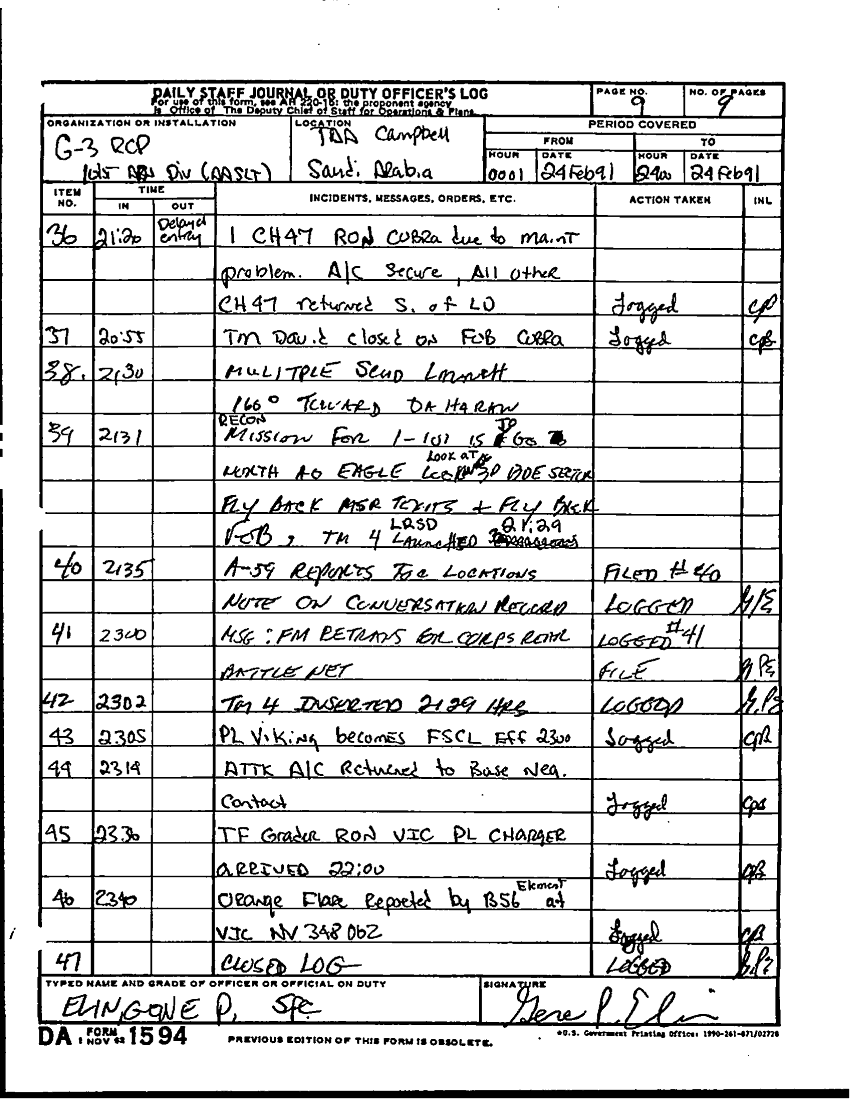 DAILY STAFF JOURNAL OR DUTY OFFICER'S LOG
For use of this form, see AR 220-15; the proponent agency
is Office of The Deputy Chief of Staff for Operations & Plans.
PAGE NO.
9
NO. OF PAGES
9
ORGANIZATION OR INSTALLATION
G-3 RCP
101st ABN Div (AASLT)
LOCATION
TAA Campbell
Saudi Arabia
PERIOD COVERED
FROM
TO
HOUR
0001
DATE
24Feb91
HOUR
2400
DATE
24Feb91
ITEM NO.
TIME
IN
OUT
INCIDENTS, MESSAGES, ORDERS, ETC.
ACTION TAKEN
INL
36 21:20 Delayed entry 1 CH47 RON COBRA due to maint
problem. A/C Secure, All other
CH47 returned S. of LD Logged
37 20:55 TM David closed on FOB COBRA Logged cpB
38. 2130 MULITPLE SCUD
160° TOWARD DAHARAN
RECON
39 2131 MISSION FOR 1-101 IS TO GO
LOOK AT
NORTH AO EAGLE 3D BDE SECTOR
FLY BACK MSR TEXAS + FLY BACK
LRSD 21:29
FOB, TM 4 LAUNCHED
40 2135 A-59 REPORTS TOC LOCATIONS FILED #40
NOTE ON CONVERSATION RECORD LOGGED
41 2300 MSG: FM RETRANS FOR CORPS REAR LOGGED #41
BATTLE NET FILE
42 2302 TM 4 INSERTED 2129 HRS LOGGED
43 2305 PL Viking becomes FSCL EFF 2300 Logged cpB
44 2314 ATTK A/C Returned to Base Neg.
Contact Logged cpB
45 2336 TF Grader RON VIC PL CHARGER
ARRIVED 22:00 Logged cpB
46 2340 Orange Flare Reported by B56 Element at
VIC NV 348 062 Logged cpB
47 CLOSED LOG LOGGED
TYPED NAME AND GRADE OF OFFICER OR OFFICIAL ON DUTY
ELIN, GENE P, SFC
SIGNATURE
Gene P. Elin
DA FORM 1 NOV 62 1594
PREVIOUS EDITION OF THIS FORM IS OBSOLETE.
*U.S. Government Printing Office: 1990-261-871/02728